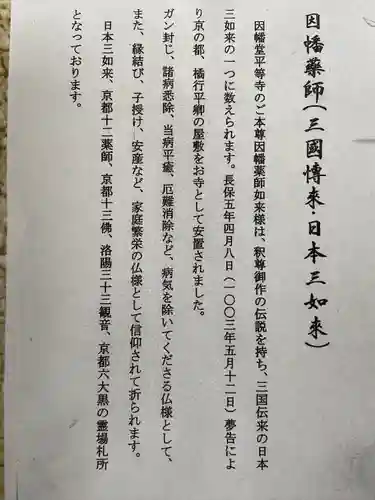 因幡藥師(三國傳来・日本三如来)
因幡堂平等寺のご本尊因幡薬師如来様は、釈尊御作の伝説を持ち、三国伝来の日本
三如来の一つに数えられます。長保五年四月八日(一〇〇三年五月十二日)夢告によ
り京の都、橘行平卿の屋敷をお寺として安置されました。
ガン封じ、諸病悉除、当病平癒、厄難消除など、病気を除いてくださる仏様として、
また、縁結び、子授け、安産など、家庭繁栄の仏様として信仰されて折られます。
日本三如来、京都十二薬師、京都十三佛、洛陽三十三観音、京都六大黒の霊場札所
となっております。